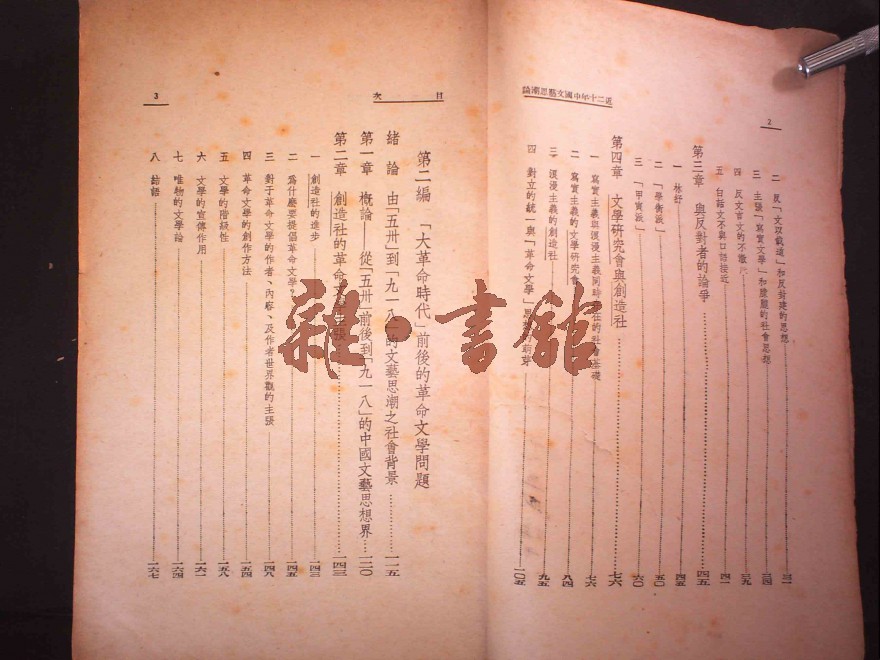 近二十年中國文藝思潮論
2
二 反「文以載道」和反封建的思想 三一
三 主張「寫實文學」和朦朧的社會思想 三四
四 反文言文的不徹 三九
五 白話文不與口語接近 四一
第三章 與反對者的論爭 四五
一 林紓 四五
二 「學衡派」 五〇
三 「甲寅派」 六〇
第四章 文學研究會與創造社 七六
一 寫實主義與浪漫主義同時存在的社會基礎 七六
二 寫實主義的文學研究會 八四
三 浪漫主義的創造社 九五
四 對立的統一與「革命文學」思 一〇五
目次
3
第二編 「大革命時代」前後的革命文學問題
緒論 由「五卅」到「九一八」的文藝思潮之社會背景 一一五
第一章 概論——從「五卅」前後到「九一八」的中國文藝思想界 一二〇
第二章 創造社的革命文學主張 一四三
一 創造社的進步 一四三
二 爲什麼要提倡革命文學? 一四五
三 對于革命文學的作者、內容、及作者世界觀的主張 一四八
四 革命文學的創作方法 一五四
五 文學的階級性 一五八
六 文學的宣傳作用 一六一
七 唯物的文學論 一六四
八 結語 一六七
雜·書館